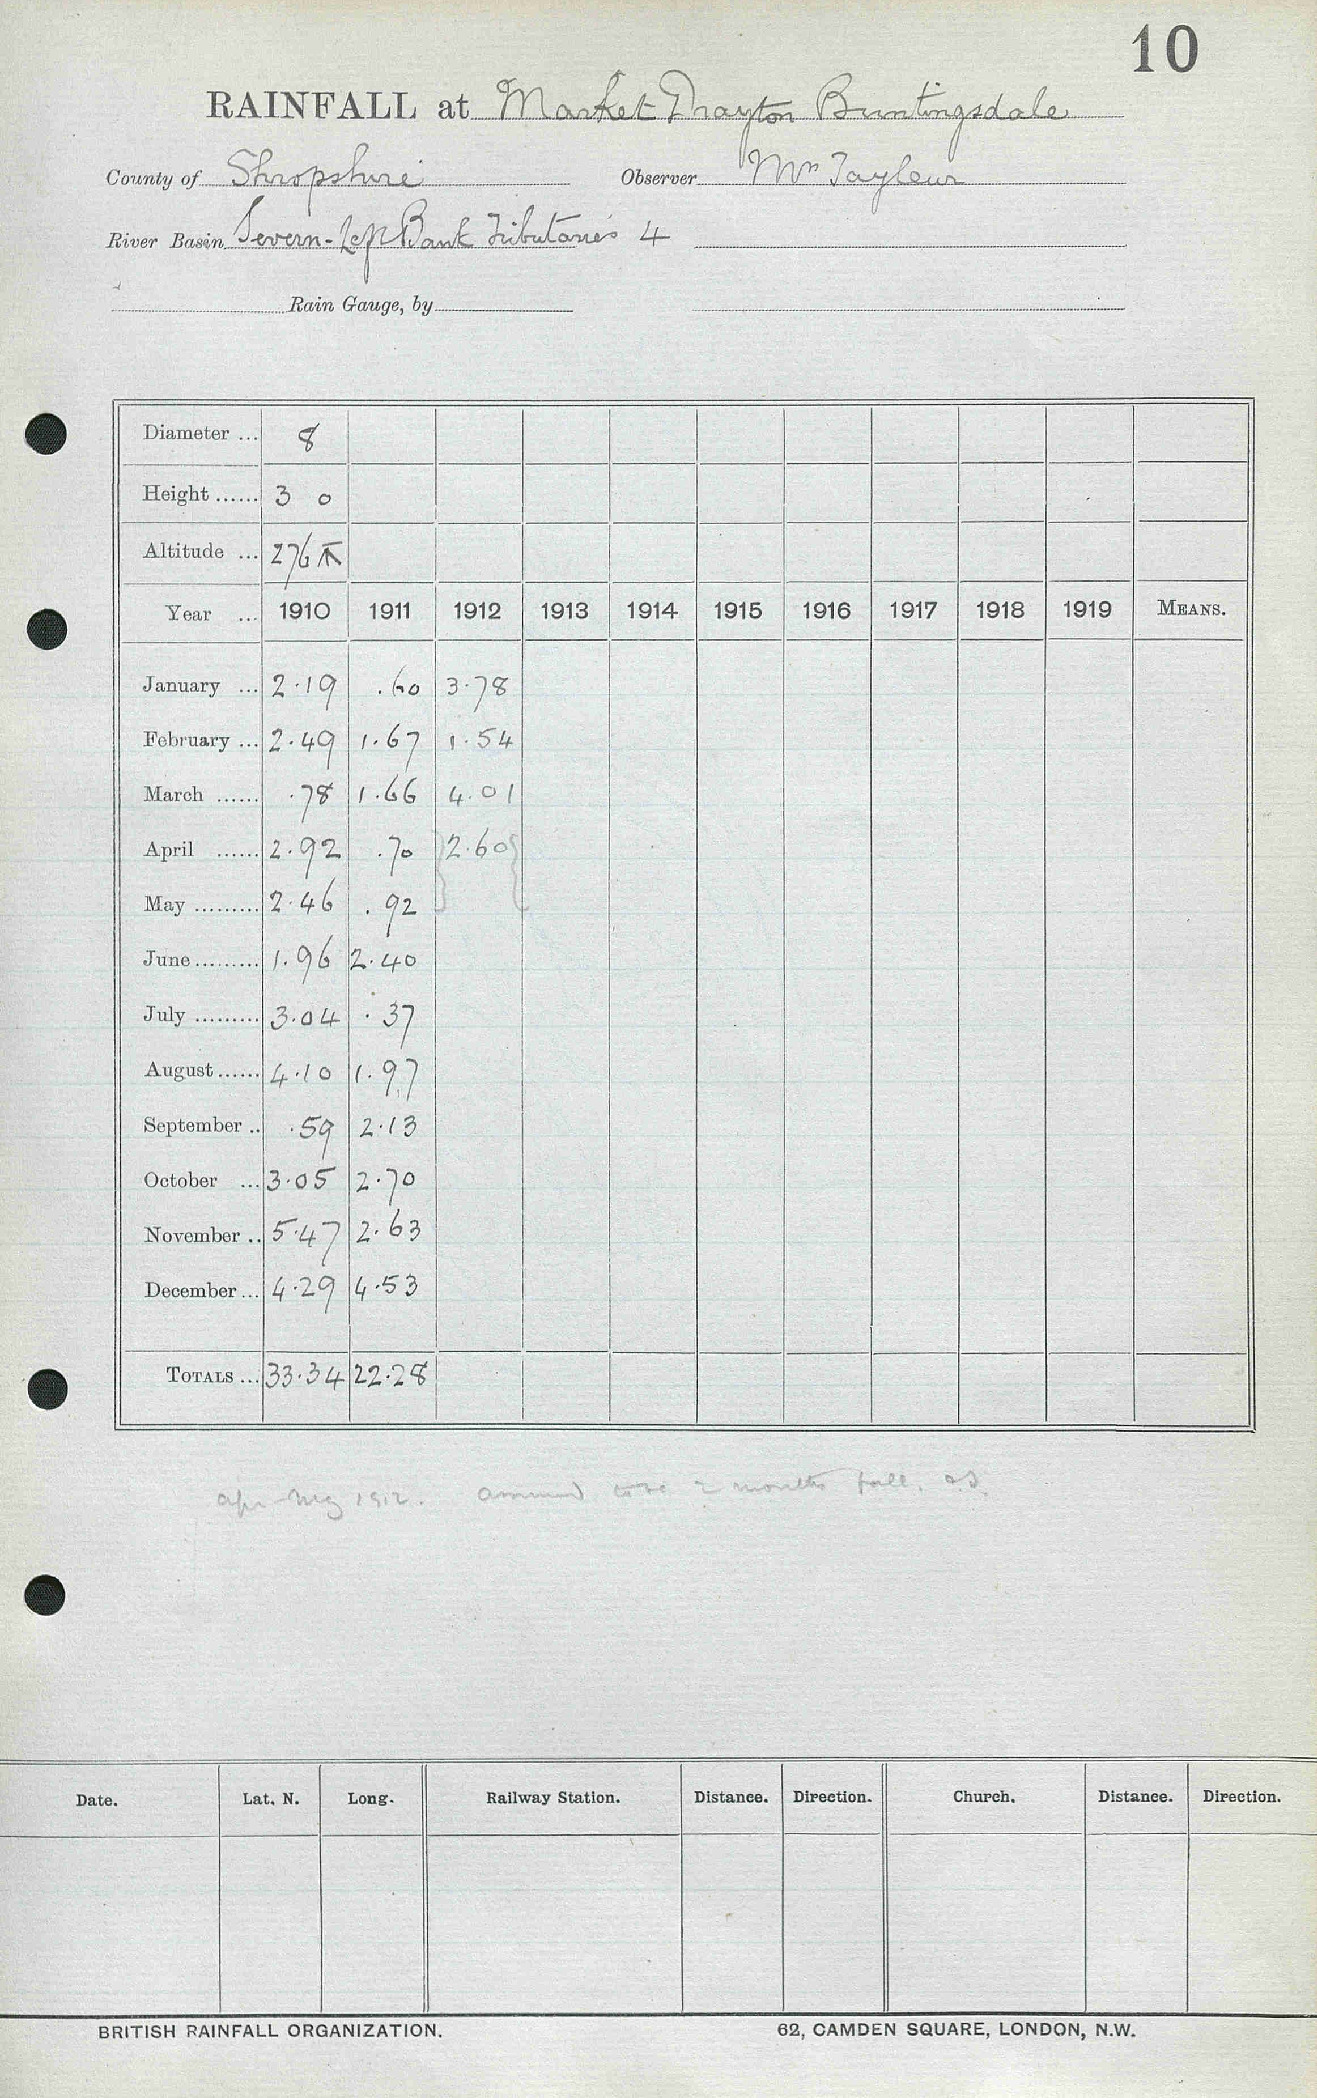 10
RAINFALL at Market Drayton Buntingsdale
County of Shropshire Observer Mrs Tayleur
River Basin Severn-Left Bank Tributaries 4
Rain Gauge, by
Diameter ... 8
Height ...... 3 0
Altitude ... 276
Year ... 1910 1911 1912 1913 1914 1915 1916 1917 1918 1919 MEANS.
January ... 2.19 .60 3.78
February ... 2.49 1.67 1.54
March ...... .78 1.66 4.01
April ...... 2.92 .70 } 2.60 {
May ......... 2.46 .92
June ......... 1.96 2.40
July ......... 3.04 .37
August ...... 4.10 1.97
September .. .59 2.13
October ... 3.05 2.70
November .. 5.47 2.63
December ... 4.29 4.53
TOTALS ... 33.34 22.28
Apr-May 1912. Assumed to be 2 months fall.
Date. Lat. N. Long. Railway Station. Distance. Direction. Church. Distance. Direction.
BRITISH RAINFALL ORGANIZATION. 62, CAMDEN SQUARE, LONDON, N.W.